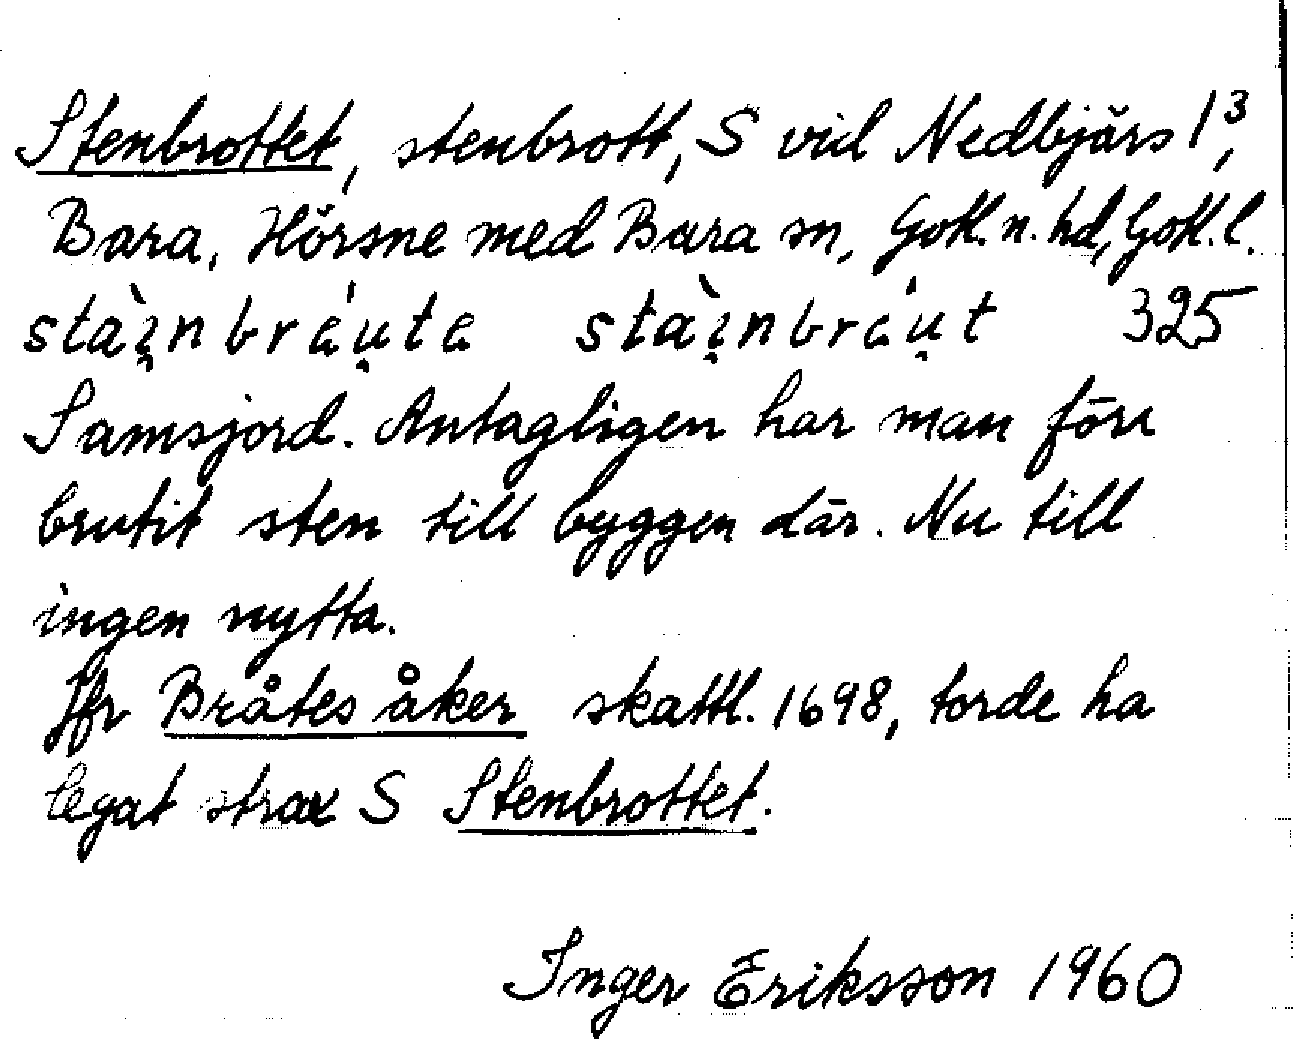 Stenbrottet, stenbrott, S vid Nedbjärs 1³,
Bara, Hörsne med Bara sn, Gotl. n. hd, Gotl. l.
stài̯nbráu̯ta stài̯nbráu̯t 325
Samsjord. Antagligen har man förr
brutit sten till byggen där. Nu till
ingen nytta.
Jfr Bråtes åker skattl. 1698, torde ha
legat strax S Stenbrottet.
Inger Eriksson 1960